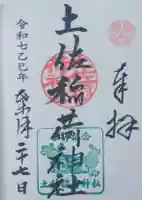 奉拝
土佐稲荷神社
令和七乙巳年
二十七日